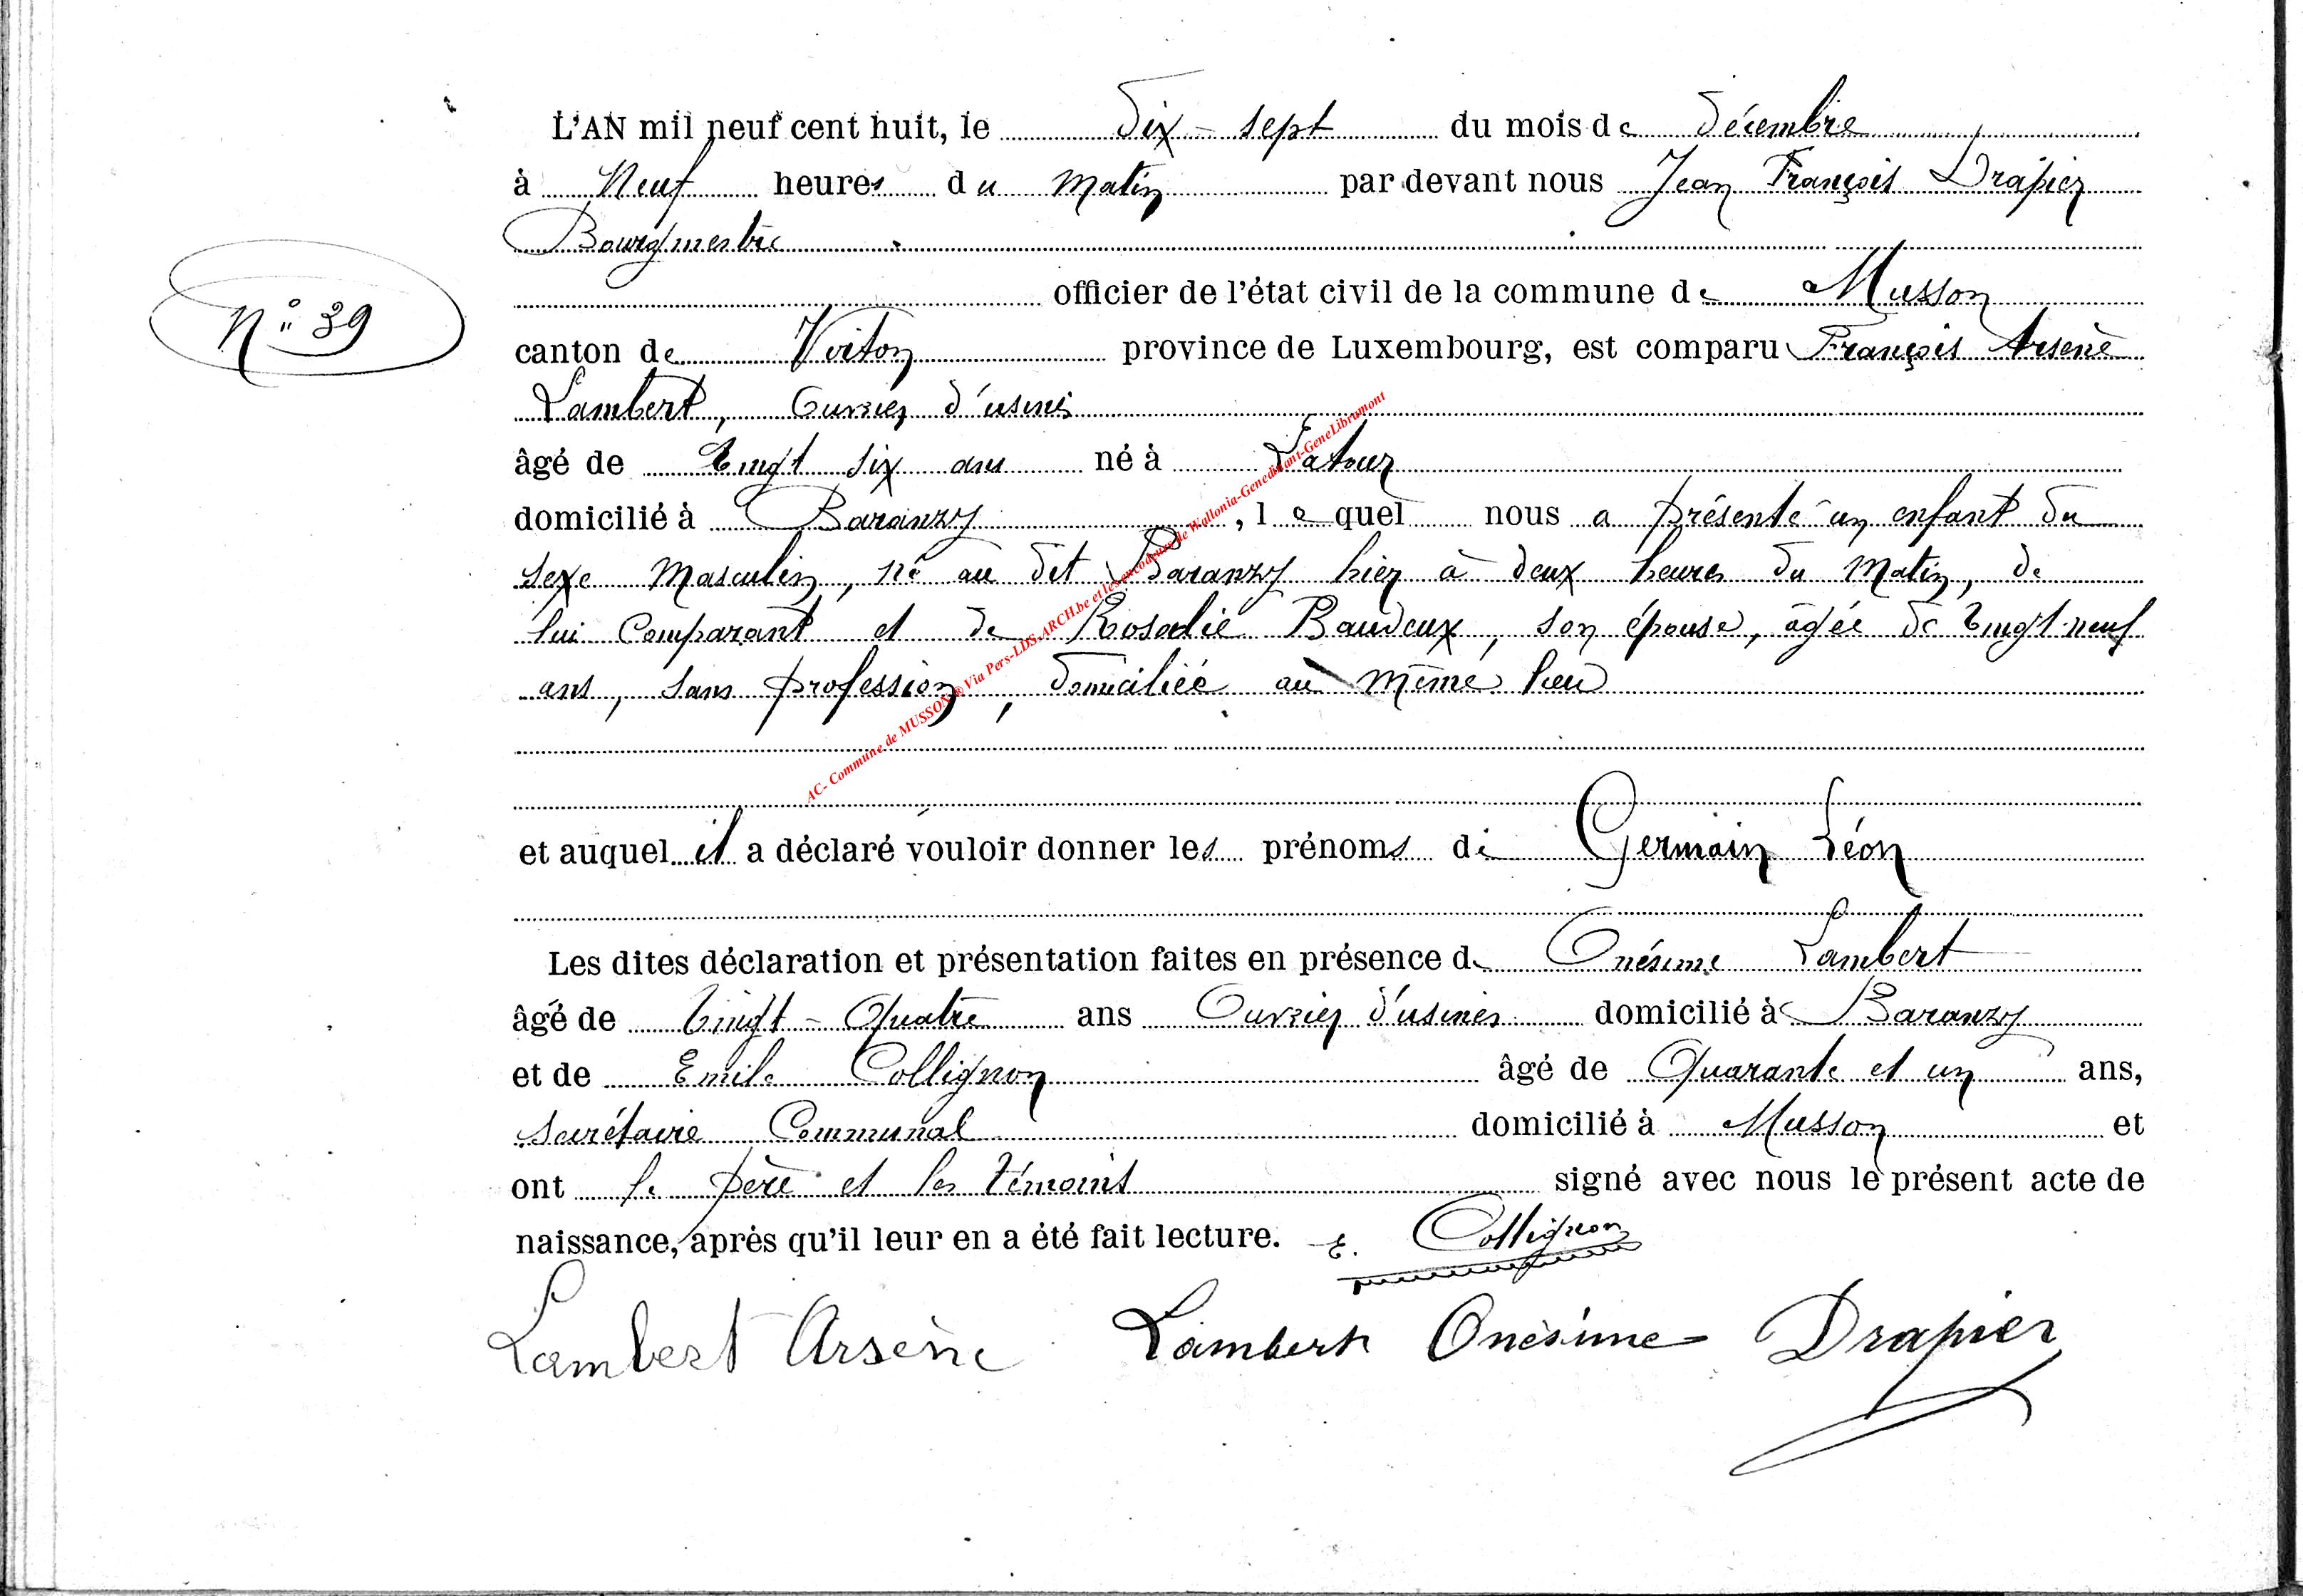 L'AN mil neuf cent huit, le dix-sept du mois de décembre
à Neuf heures du matin par devant nous Jean François Drapier
Bourgmestre
officier de l'état civil de la commune de Musson
N° 39
canton de Virton province de Luxembourg, est comparu François Arsène
Lambert, Ouvrier d'usines
âgé de Vingt six ans né à Latour
domicilié à Baranzy, lequel nous a présenté un enfant du
sexe Masculin, né au dit Baranzy hier à deux heures du Matin, de
lui Comparant et de Rosalie Baudeux, son épouse, âgée de Vingt-neuf
ans, sans profession, domiciliée au même lieu
AC- Commune de MUSSON @ Via Pers-LDS-ARCH.be et les encodeurs de Wallonia-Genedinant-GeneLibramont
et auquel il a déclaré vouloir donner les prénoms de Germain Léon
Les dites déclaration et présentation faites en présence de Onésime Lambert
âgé de Vingt-Quatre ans Ouvrier d'usines domicilié à Baranzy
et de Emile Collignon âgé de Quarante et un ans,
Secrétaire Communal domicilié à Musson et
ont le père et les témoins signé avec nous le présent acte de
naissance, après qu'il leur en a été fait lecture. E. Collignon
Lambert Arsène Lambert Onésime Drapier